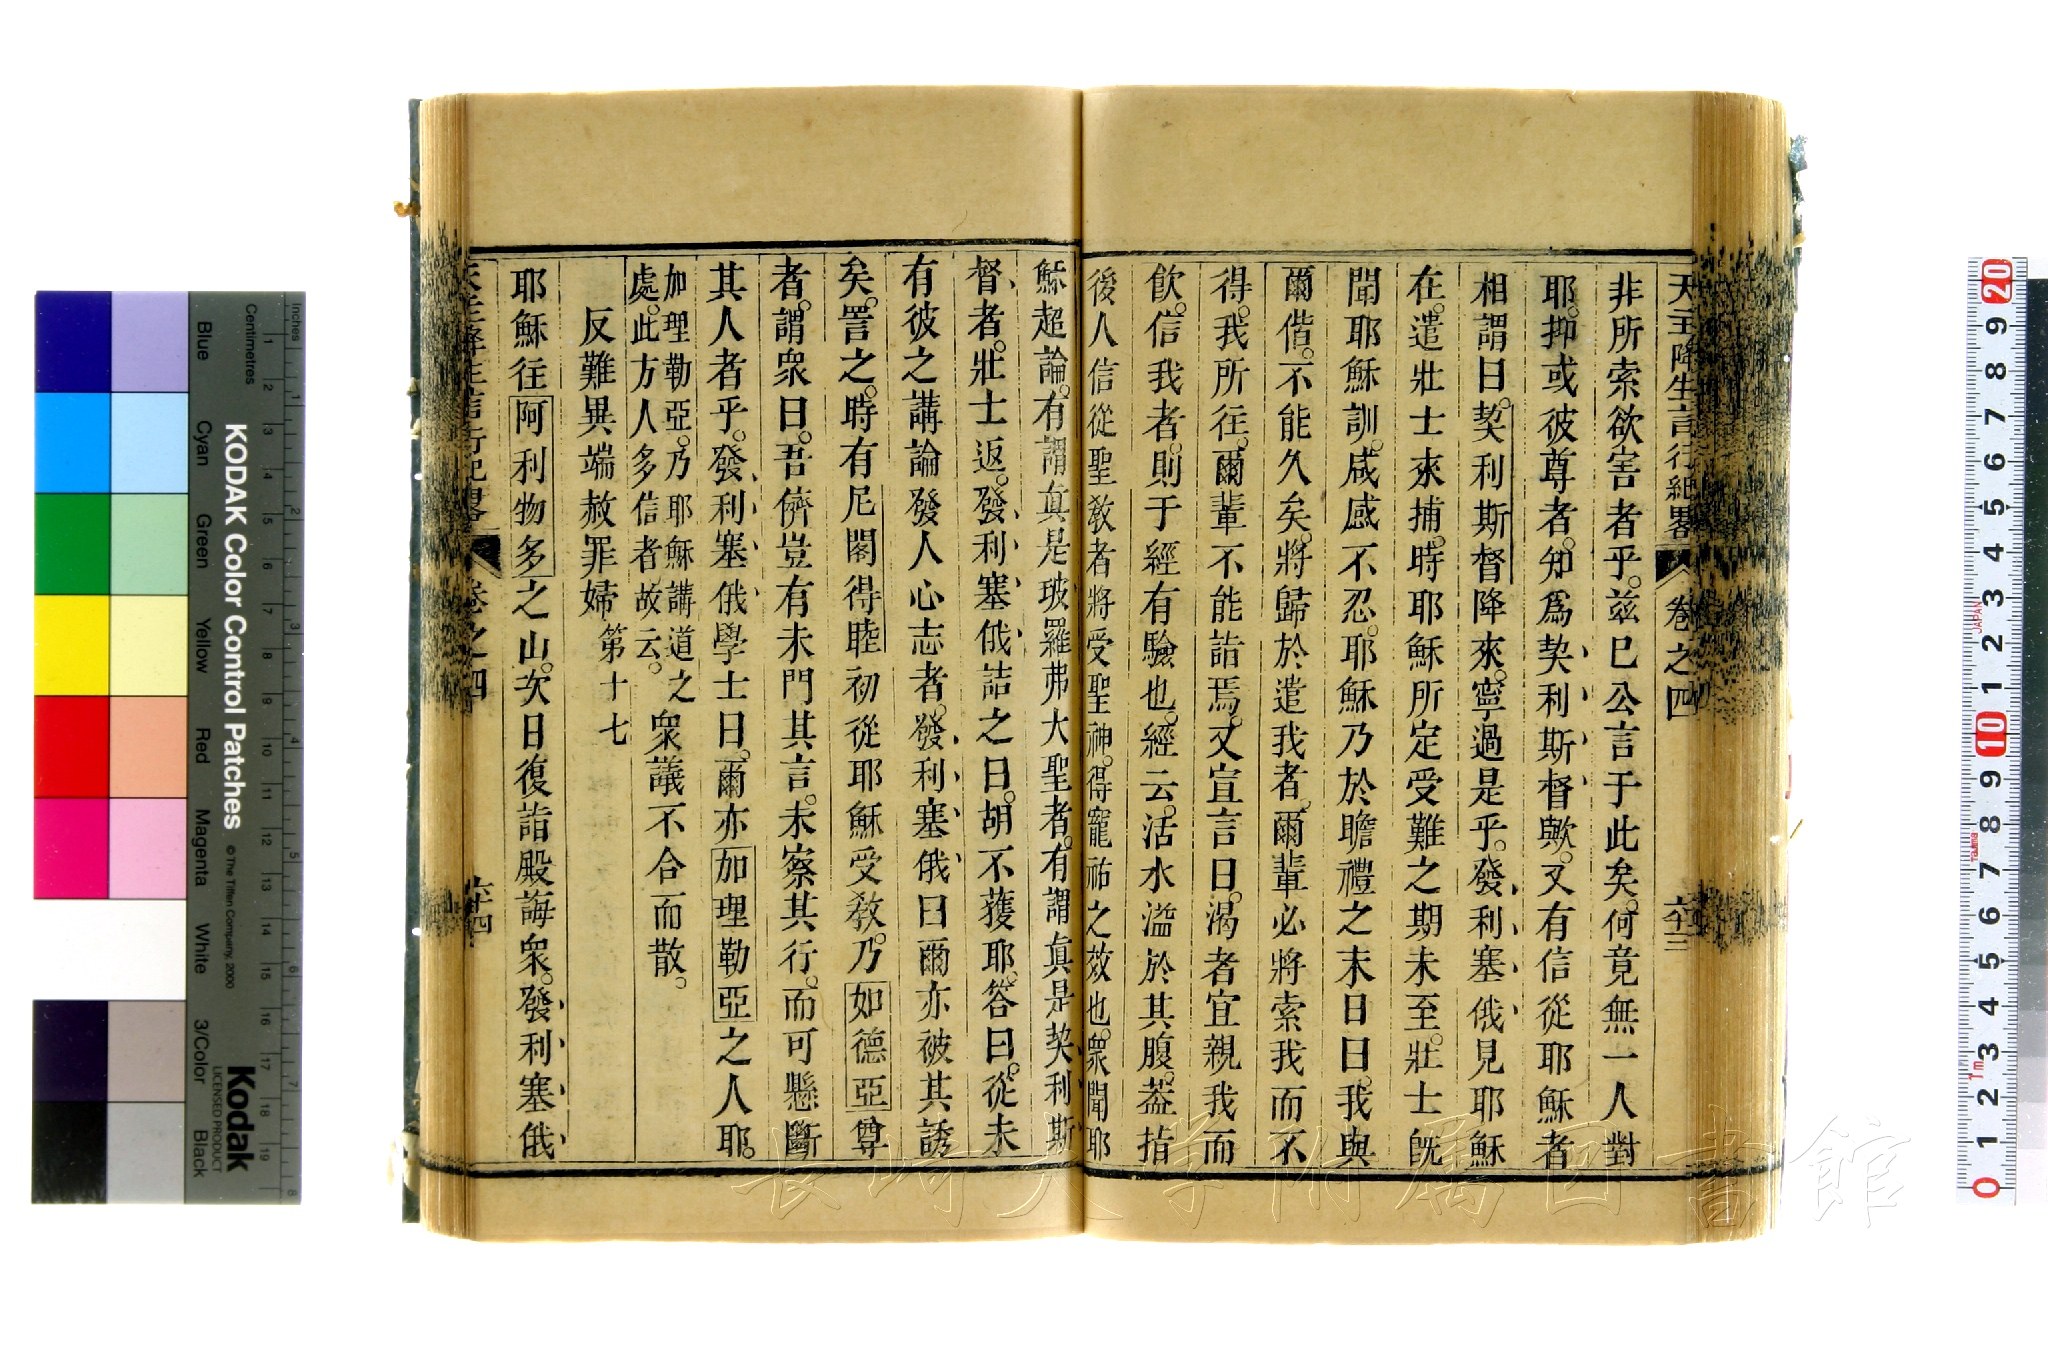 天主降生言行紀畧 卷之四 六十三
非所索欲害者乎。茲巳公言于此矣。何竟無一人對
耶。抑或彼尊者。知爲契利斯督歟。又有信從耶穌者
相謂曰。契利斯督降來。寧過是乎。發利塞俄見耶穌
在。遣壯士來捕。時耶穌所定受難之期未至。壯士旣
聞耶穌訓。咸感不忍。耶穌乃於瞻禮之末日曰。我與
爾偕。不能久矣。將歸於遣我者。爾輩必將索我而不
得。我所往。爾輩不能詣焉。又宣言曰。渴者宜親我而
飲。信我者。則于經有驗也。經云。活水溢於其腹。葢指
後人信從聖敎者將受聖神。得寵祐之效也。衆聞耶
穌超論。有謂眞是玻羅弗大聖者。有謂眞是契利斯
督者。壯士返。發利塞俄詰之曰。胡不獲耶。答曰。從未
有彼之講論發人心志者。發利塞俄曰爾亦被其誘
矣。詈之。時有尼閣得睦初從耶穌受敎。乃如德亞尊
者。謂衆曰。吾儕豈有未門其言。未察其行。而可懸斷
其人者乎。發利塞俄學士曰。爾亦加理勒亞之人耶。
加理勒亞。乃耶穌講道之
處。此方人多信者故云。
衆議不合而散。
反難異端赦罪婦 第十七
耶穌往阿利物多之山。次日復詣殿誨衆。發利塞俄
天主降生言行紀畧 卷之四 六十四
長崎大学附属図書館
KODAK Color Control Patches
© The Tiffen Company, 2000
Kodak
LICENSED PRODUCT
Inches
Centimetres
Blue
Cyan
Green
Yellow
Red
Magenta
White
3/Color
Black
JAPAN
Tajima
1m